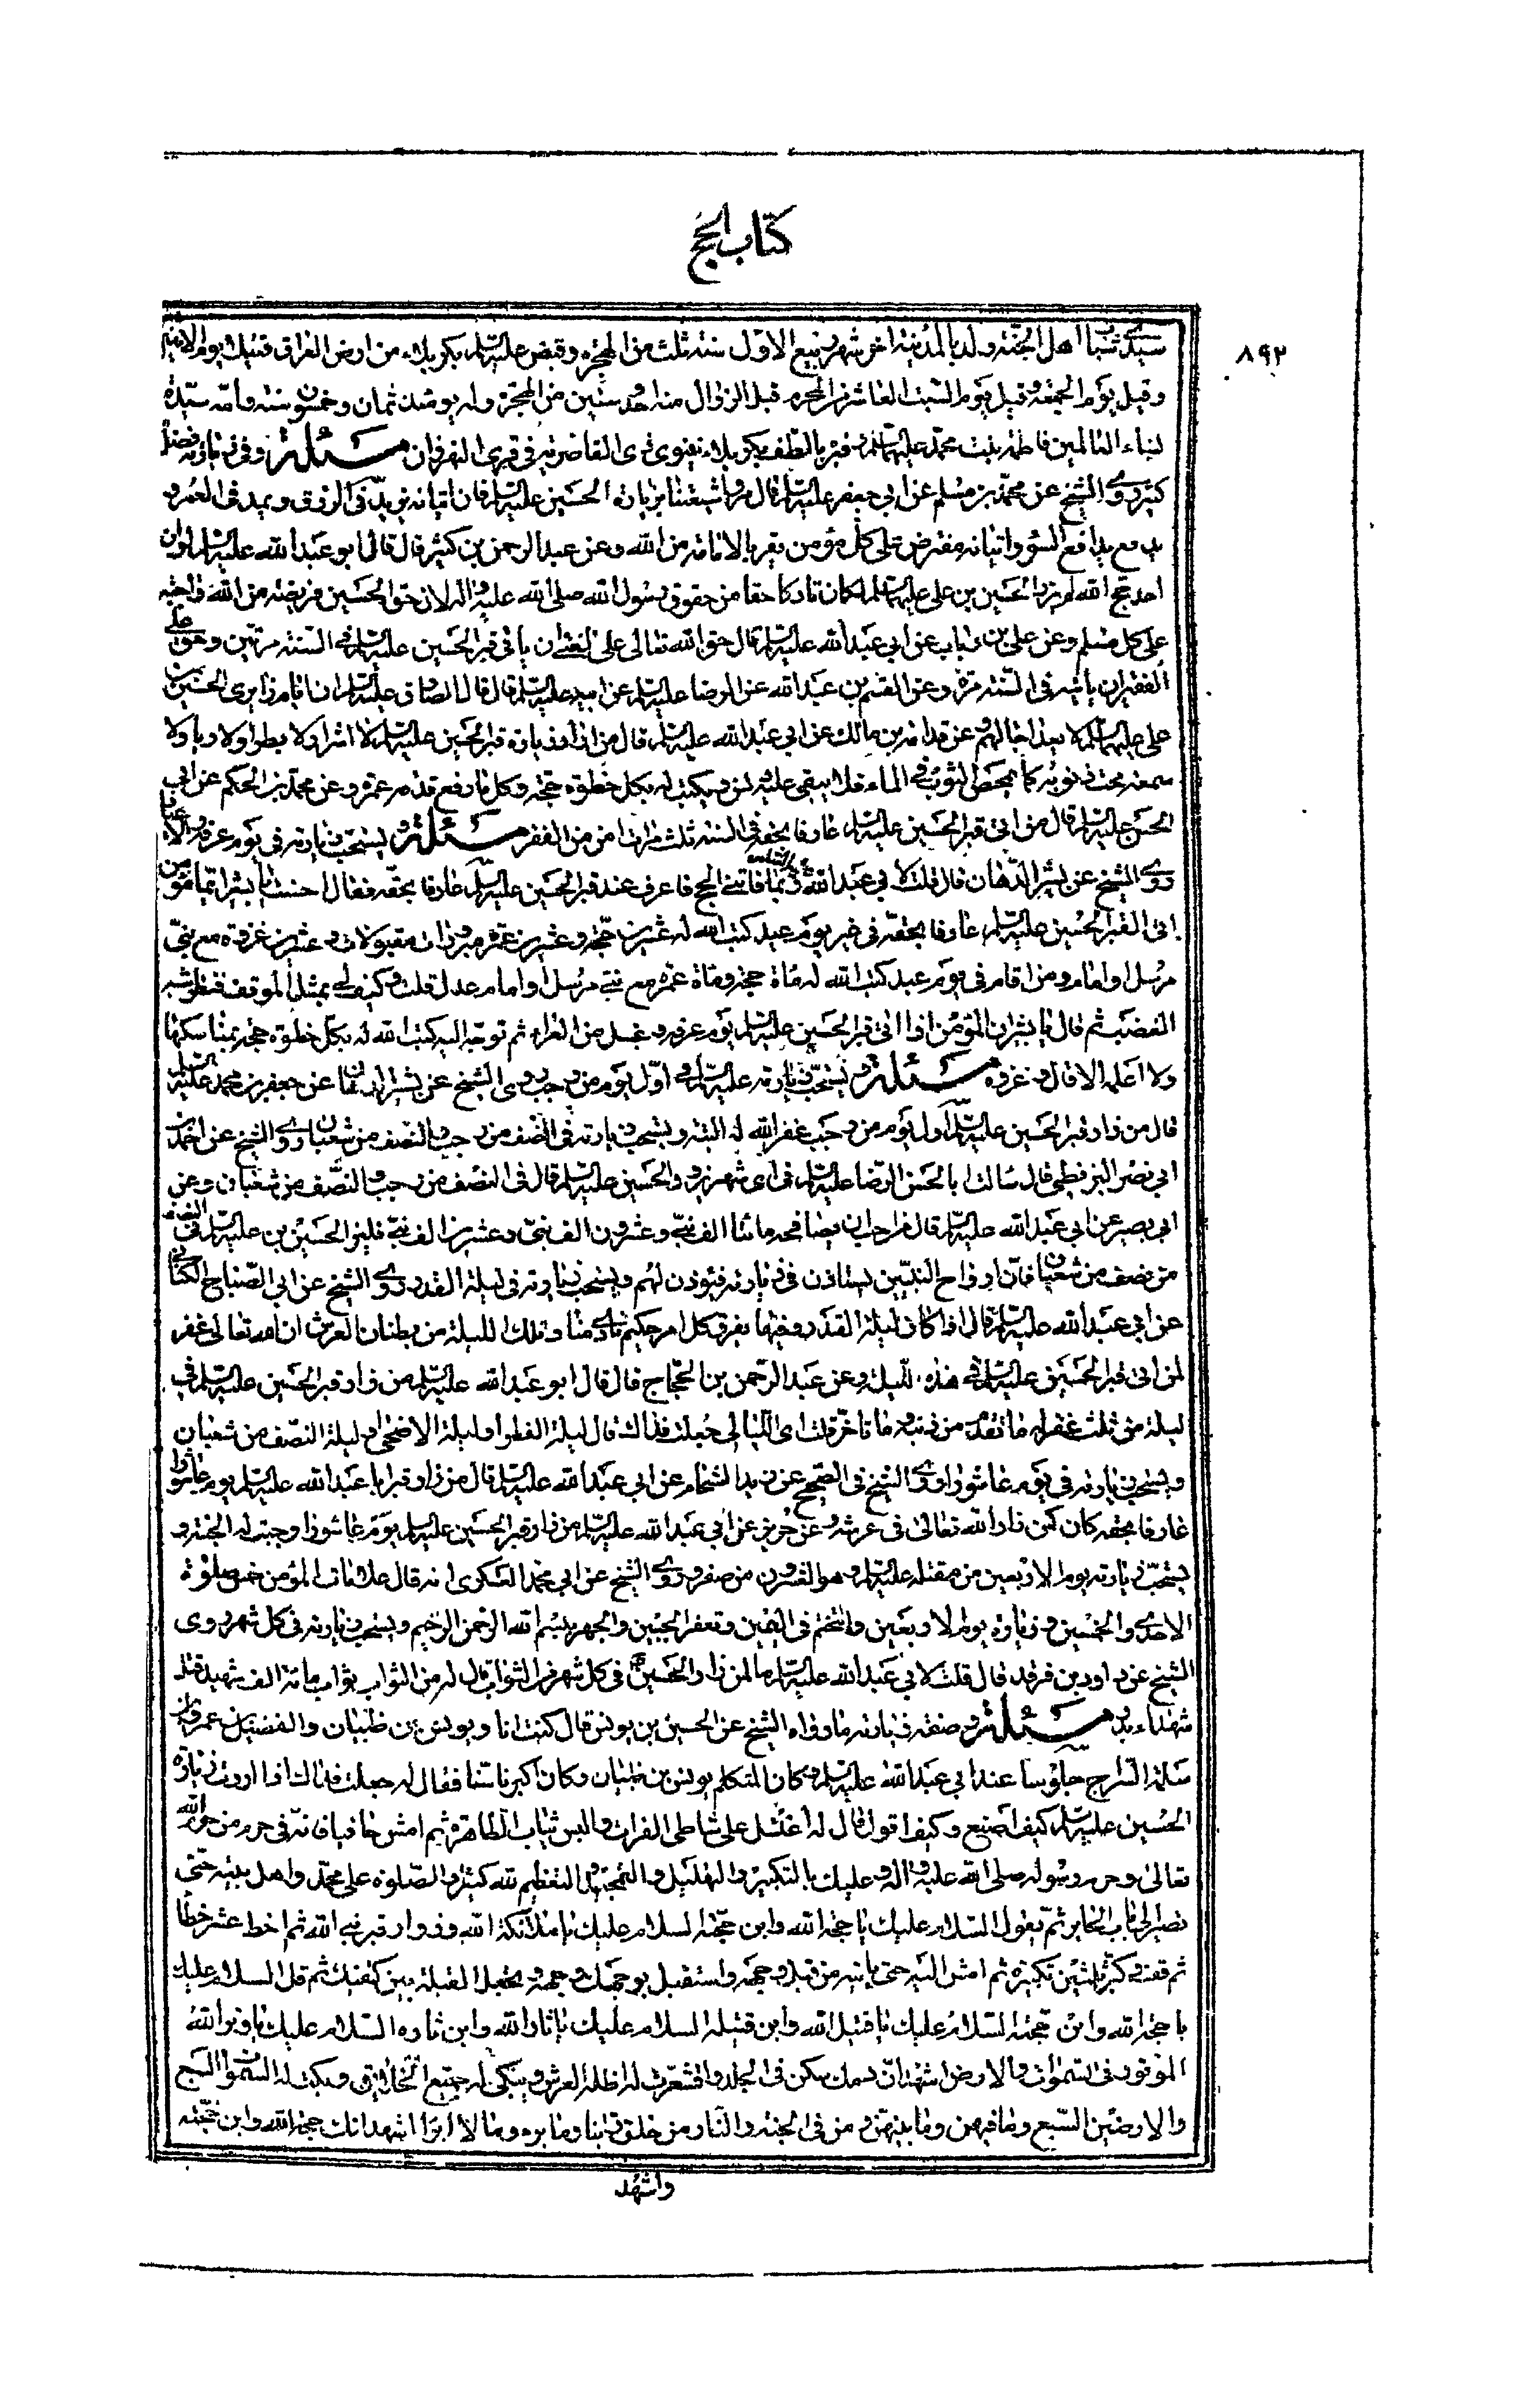 كتاب الحج
٨٩٢
سيدى شباب اهل الجنة ولد بالمدينة اخر شهر ربيع الاول سنة ثلث من الهجرة وقبض عليه السلام بكربلاء من ارض العراق قتيلا يوم الاثنين
وقيل يوم الجمعة وقيل يوم السبت العاشر من المحرم قبل الزوال سنة احدى وستين من الهجرة وله يومئذ ثمان وخمسون سنة وامه سيدة
نساء العالمين فاطمة بنت محمد عليهما السلام وقبره بالطف بكربلاء نينوى قرى الغاضرية فى قرى النهرين مسئلة وفى زيارته فضل
كثير روى الشيخ عن محمد بن مسلم عن ابى جعفر عليه السلام قال مروا شيعتنا بزيارة الحسين عليه السلام فان اتيانه يزيد فى الرزق ويمد فى العمر و
يدفع مدافع السوء واتيانه مفترض على كل مؤمن يقر بالامامة من الله وعن عبد الرحمن بن كثير قال قال ابو عبد الله عليه السلام لو ان
احدكم حج الله لم يزر الحسين بن على عليهما السلام لكان تاركا حقا من حقوق رسول الله صلى الله عليه واله لان حق الحسين فريضة من الله واجبة
على كل مسلم وعن على بن رئاب عن ابى عبد الله عليه السلام قال حق الله تعالى على الغنى ان ياتى قبر الحسين عليه السلام فى السنة مرتين وحق على
الفقير ان ياتيه فى السنة مرة وعن القسم بن عبد الله عن الرضا عليه السلام عن ابيه عليه السلام قال قال الصادق عليه السلام ان ايام زايرى الحسين بن
على عليهما السلام لا يعد اجالهم وعن قدامة بن مالك عن ابى عبد الله عليه السلام قال من اراد زيارة قبر الحسين عليه السلام لا اشرا ولا بطرا ولا رياء ولا
سمعة محت ذنوبه كما يمحض الثوب فى الماء فلا يبقى عليه دنس ويكتب له بكل خطوة حجة وكل ما رفع قدمه عمرة وعن محمد بن الحكم عن ابى
الحسن عليه السلام قال من اتى قبر الحسين عليه السلام عارفا بحقه فى السنة ثلث مرات امن من الفقر مسئلة ويستحب زيارته فى يوم عرفة والاعياد
روى الشيخ عن بشير الدهان قال قلت لابى عبد الله عليه السلام ربما فاتنى الحج فاعرف عند قبر الحسين عليه السلام عارفا بحقه فقال احسنت يا بشير ايما مؤمن
اتى القبر الحسين عليه السلام عارفا بحقه فى غير يوم عيد كتب الله له عشرين حجة وعشرين عمرة مبرورات مقبولات وعشرين غزوة مع نبى
مرسل او امام ومن اتاه فى يوم عيد كتب الله له مأة حجة ومأة عمرة مع نبى مرسل او امام عدل قلت وكيف لى بمثل الموقف فنظر شبه
المغضب ثم قال يا بشير ان المؤمن اذا اتى قبر الحسين عليه السلام يوم عرفة وغسل من الفراة ثم توجه اليه كتب الله له بكل خطوة حجة بمناسكها
ولا اعلمه الا قال وغزوة مسئلة ويستحب زيارته عليه السلام فى اول يوم من رجب روى الشيخ عن بشير الدهان عن جعفر بن محمد عليه السلام
قال من زار قبر الحسين عليه السلام اول يوم من رجب غفر الله له البتة ويستحب زيارته فى النصف من رجب والنصف من شعبان روى الشيخ عن احمد بن
ابى نصر البزنطى قال سالت ابا الحسن الرضا عليه السلام فى اى شهر نزور الحسين عليه السلام قال فى النصف من رجب والنصف من شعبان وعن
ابى بصير عن ابى عبد الله عليه السلام قال من احب ان يصافحه مائتا الف نبى وعشرون الف نبى وعشرين الف نبى فليزر الحسين بن على عليه السلام فى
من نصف من شعبان فان ارواح النبيين يستاذن فى زيارته فيؤذن لهم ويستحب زيارته فى ليلة القدر روى الشيخ عن ابى الصباح الكنانى
عن ابى عبد الله عليه السلام قال اذا كان ليلة القدر وفيها يفرق كل امر حكيم نادى مناد تلك الليلة من بطنان العرش ان الله تعالى غفر
لمن اتى قبر الحسين عليه السلام فى هذه الليلة وعن عبد الرحمن بن الحجاج قال قال ابو عبد الله عليه السلام من زار قبر الحسين عليه السلام فى
ليلة من ثلث غفر له ما تقدم من ذنبه وما تاخر قلت اى الليالى جعلت فداك قال ليلة الفطر او ليلة الاضحى او ليلة النصف من شعبان
ويستحب زيارته فى يوم عاشورا روى الشيخ فى الصحيح عن زيد الشحام عن ابى عبد الله عليه السلام قال من زار قبر ابا عبد الله عليه السلام يوم عاشورا
عارفا بحقه كان كمن زار الله تعالى فى عرشه وعن حريز عن ابى عبد الله عليه السلام من زار قبر الحسين عليه السلام يوم عاشورا وجبت له الجنة و
يستحب زيارته يوم الاربعين من مقتله عليه السلام وهو العشرون من صفر روى الشيخ عن ابى محمد العسكرى انه قال علامات المؤمن خمس صلوة
الاحدى والخمسين وزيارة يوم الاربعين والتختم فى اليمين وتعفر الجبين والجهر ببسم الله الرحمن الرحيم ويستحب زيارته فى كل شهر روى
الشيخ عن داود بن فرقد قال قلت لابى عبد الله عليه السلام ما لمن زار الحسين فى كل شهر من الثواب قال له من الثواب ثواب مائة الف شهيد مثل
شهداء بدر مسئلة وصفة زيارته ما رواه الشيخ عن الحسين بن يونس قال كنت انا ويونس بن ظبيان والمفضل بن عمر وابو
سلمة السراج جلوسا عند ابى عبد الله عليه السلام وكان المتكلم يونس بن ظبيان وكان اكبرنا سنا فقال له جعلت فداك اذا اردت زيارة
الحسين عليه السلام كيف اصنع وكيف اقول قال له اغتسل على شاطى الفرات والبس ثياب الطاهرة ثم امش حافيا فانه فى حرم من حرم الله
تعالى وحرم رسوله صلى الله عليه واله وعليك بالتكبير والتهليل والتمجيد والتعظيم لله كثيرا والصلوة على محمد واهل بيته حتى
تصير الى باب الحاير ثم تقول السلام عليك يا حجة الله وابن حجته السلام عليك يا ملائكة الله وزوار قبر نبى الله ثم اخط عشر خطا
ثم قف وكبر ثلثين تكبيرة ثم امش اليه حتى ياتيه من قبل وجهه واستقبل بوجهك وجهه وتجعل القبلة بين كتفيك ثم قل السلام عليك
يا حجة الله وابن حجته السلام عليك يا قتيل الله وابن قتيله السلام عليك يا ثار الله وابن ثاره السلام عليك يا وتر الله
الموتور فى السموات والارض اشهد ان دمك سكن فى الخلد واقشعرت له اظلة العرش وبكى له جميع الخلائق وبكت له السموات السبع
والارضين السبع وما فيهن وما بينهن ومن فى الجنة والنار من خلق ربنا وما يرى وما لا يرى اشهد انك حجة الله وابن حجته
واشهد